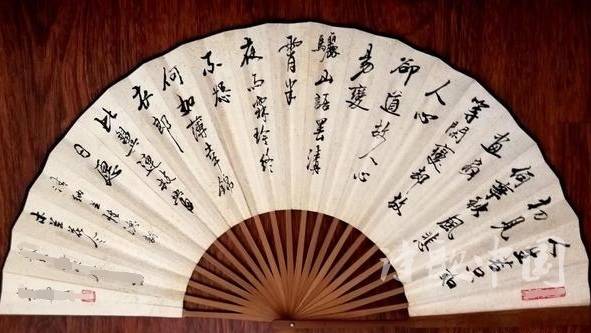 人生若只如
初見
何事秋風悲
畫扇
等閑變却故
人心
卻道故人心
易變
驪山語罷清
宵半
夜雨霖鈴終
不怨
何如薄幸錦
衣郎
比翼連枝當
日願
诗词中国